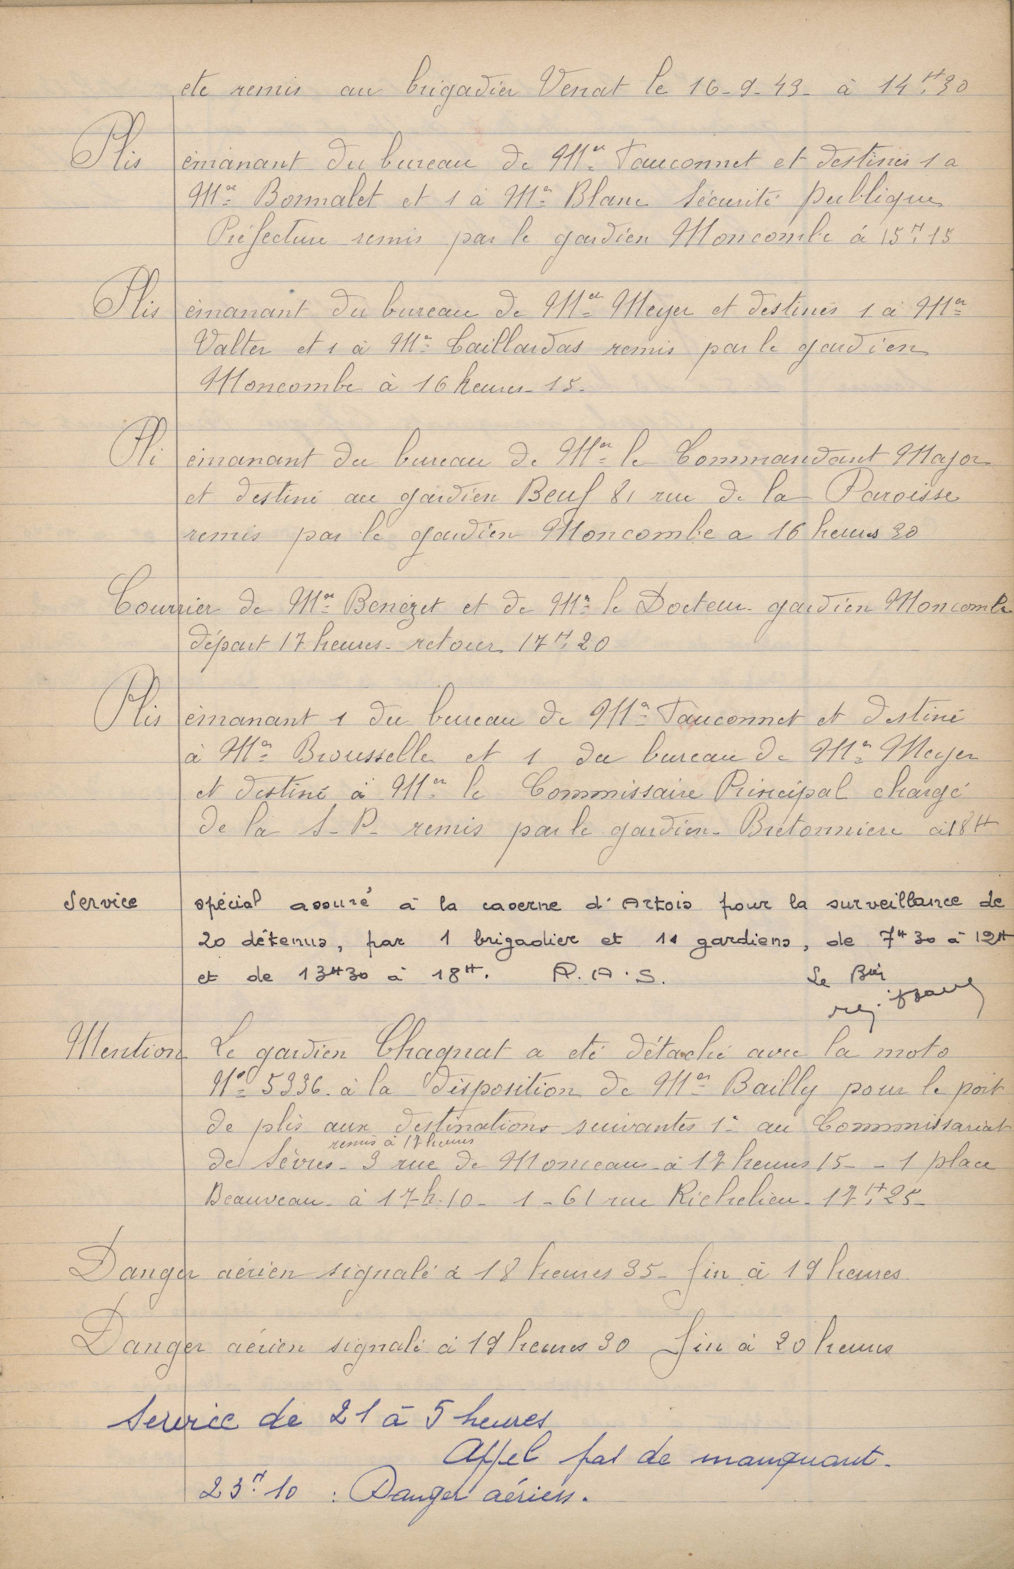 ete remis au brigadier Venat le 16-9-43- à 14H,30
Plis émanant du bureau de Mr Fauconnet et destinés 1 a
Mr Bonnalet et 1 à Mr Blanc Sécurité publique
Préfecture remis par le gardien Moncombe à 15H,15
Plis émanant du bureau de Mr Meyer et destinés 1 à Mr
Valter et 1 à Mr Caillardas remis par le gardien
Moncombe à 16 heures-15-
Pli émanant du bureau de Mr le Commandant Major
et destiné au gardien Beuf 81 rue de la Paroisse
remis par le gardien Moncombe a 16 heures 30
Courrier de Mr Benézet et de Mr le Docteur- gardien Moncombe
départ 17 heures- retour 17H,20
Plis émanant 1 du bureau de Mr Fauconnet et destiné
à Mr Brousselle et 1 du bureau de Mr Meyer
et destiné à Mr le Commissaire Principal chargé
de la S-P- remis par le gardien- Bretonniere à 18H
Service spécial assuré à la caserne d'Artois pour la surveillance de
20 détenus, par 1 brigadier et 11 gardiens, de 7H30 à 12H
et de 13H30 à 18H. R.A.S. Le Bier
Mention Le gardien Chagnat a eté détaché avec la moto
No 5336- à la disposition de Mr Bailly pour le port
de plis aux destinations suivantes 1- au Commissariat
remis à 17 heures
de Sèvres- 3 rue de Monceau- à 17 heures 15- - 1 place
Beauveau- à 17-h-10- 1-61 rue Richelieu- 17H,25-
Danger aérien signalé à 18 heures 35- fin à 19 heures
Danger aérien signalé à 19 heures 30 fin à 20 heures
Service de 21 à 5 heures
Appel pas de manquant.
23H.10 : Danger aérien.